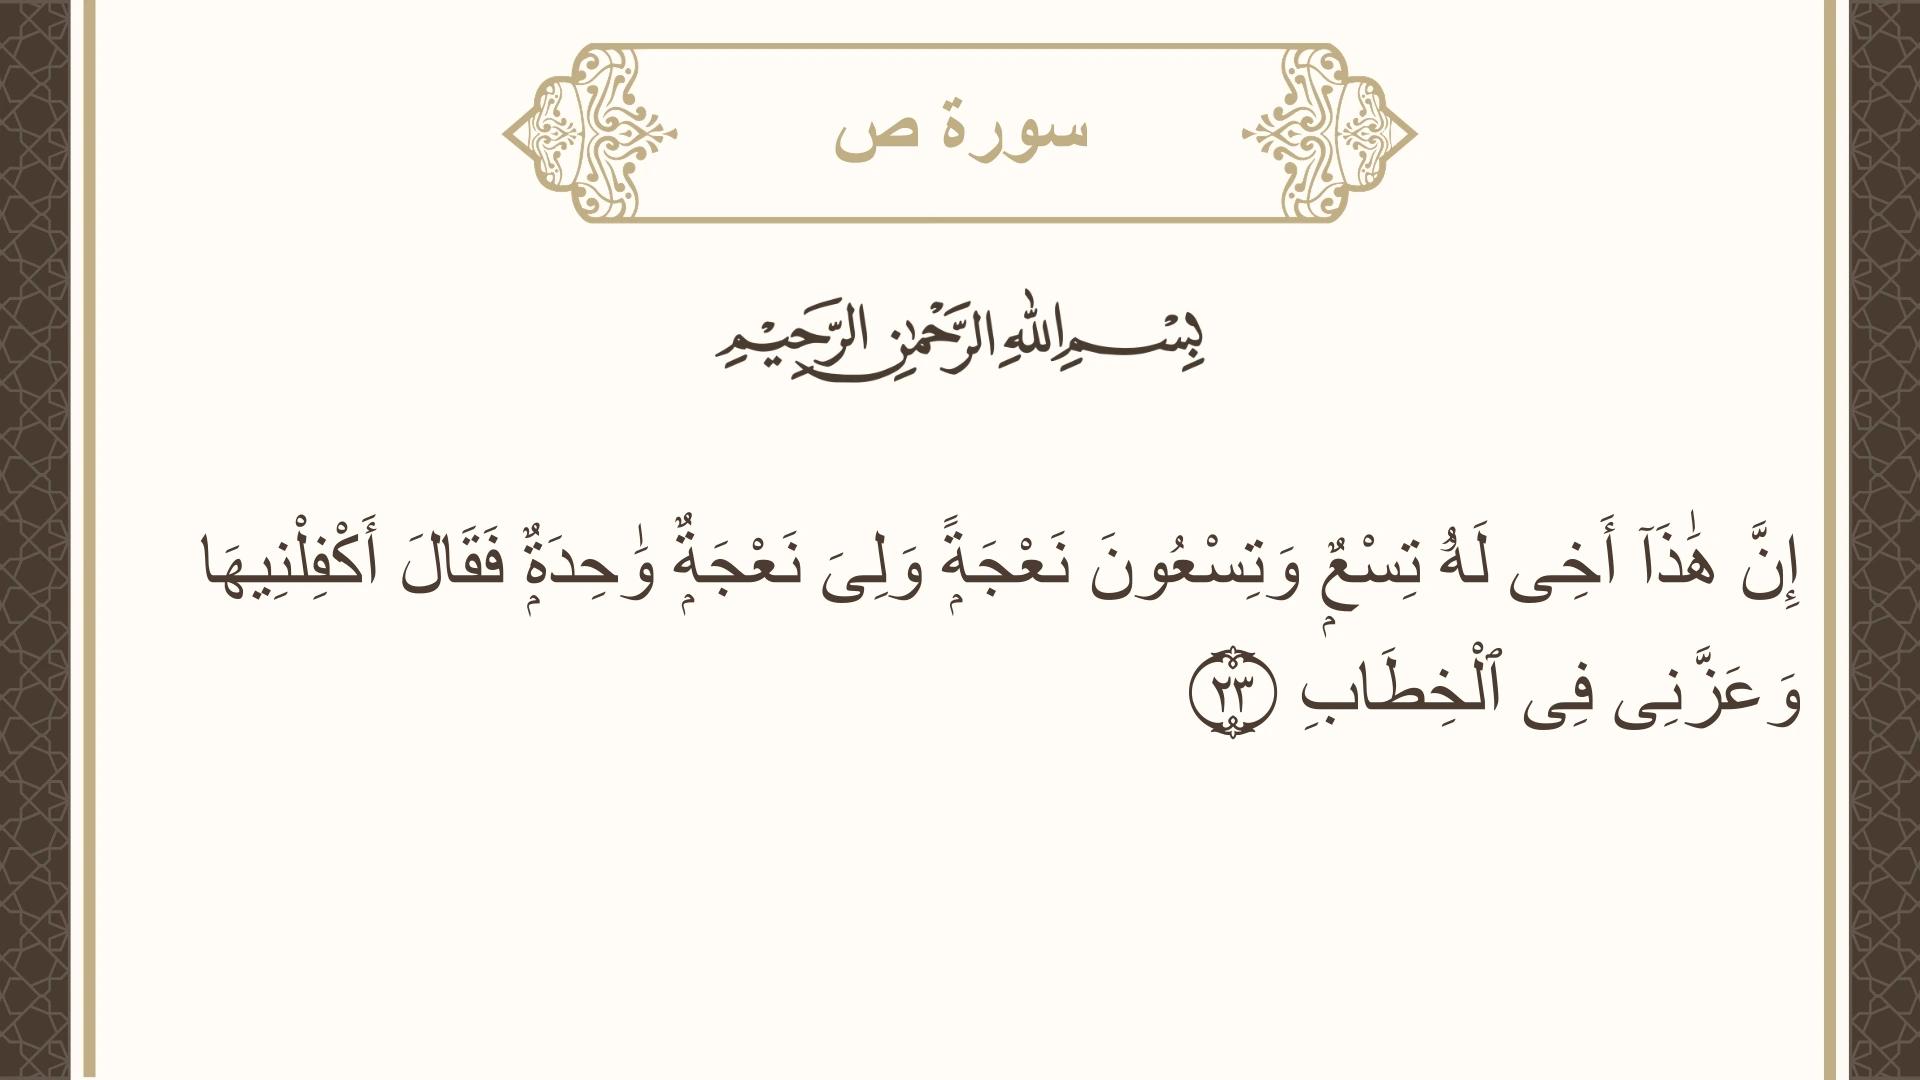 سورة ص
بِسْمِ اللهِ الرَّحْمٰنِ الرَّحِيْمِ
إِنَّ هَٰذَآ أَخِى لَهُۥ تِسْعٌۭ وَتِسْعُونَ نَعْجَةًۭ وَلِىَ نَعْجَةٌۭ وَٰحِدَةٌۭ فَقَالَ أَكْفِلْنِيهَا
وَعَزَّنِى فِى ٱلْخِطَابِ ٢٣